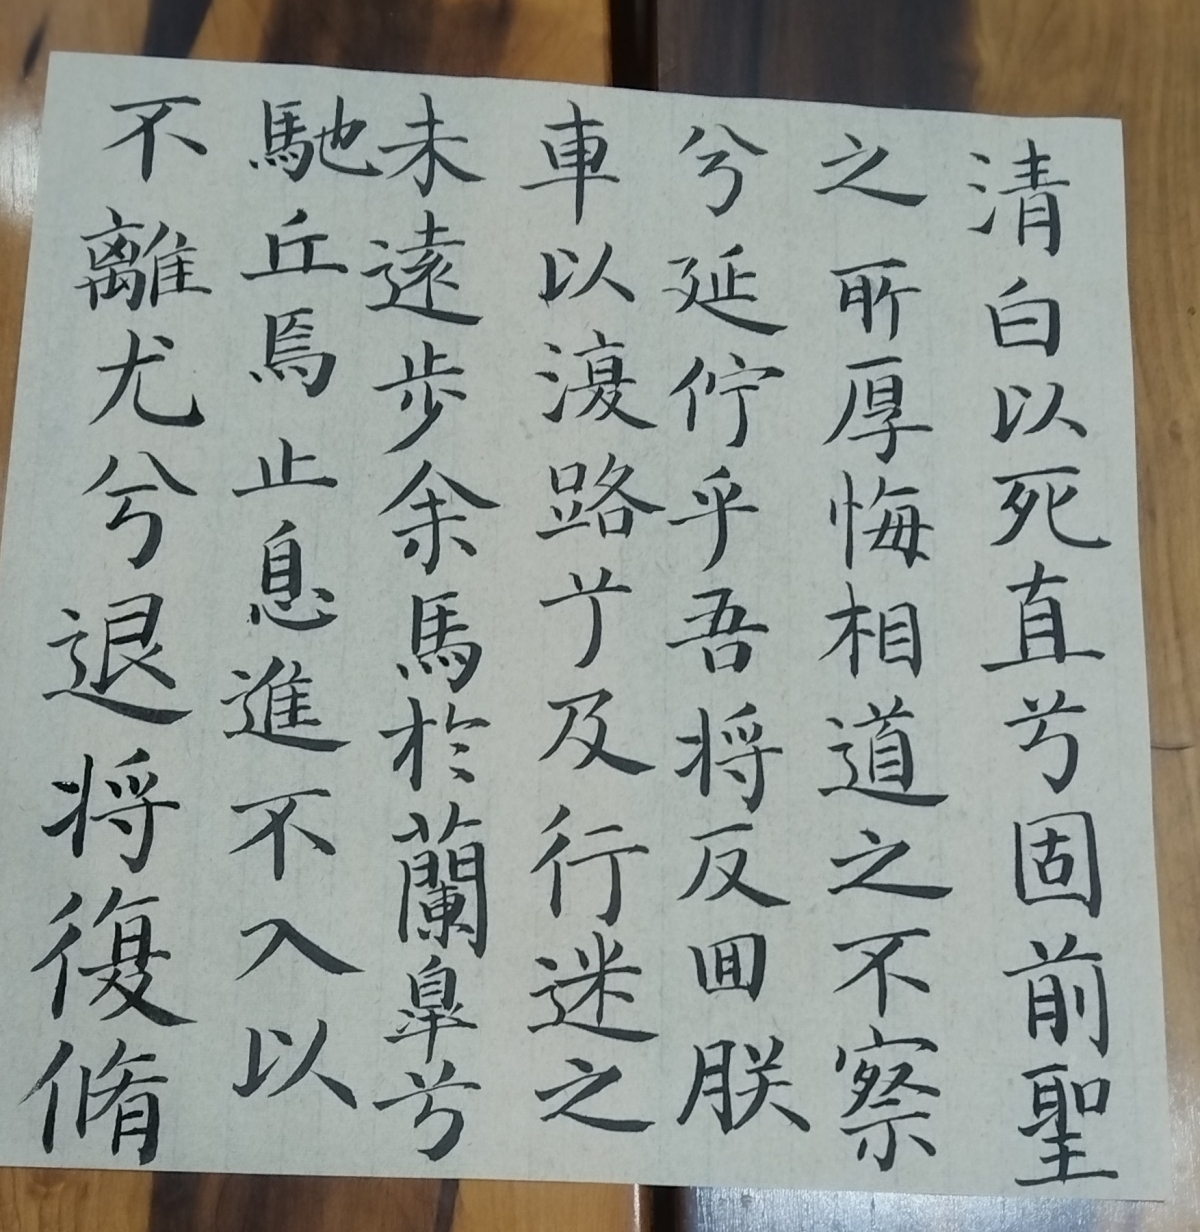 清白以死直兮固前聖
之所厚悔相道之不察
兮延佇乎吾将反囬朕
車以澓路兮及行迷之
未遠步余馬於蘭皐兮
馳丘焉止息進不入以
不離尤兮退将復脩